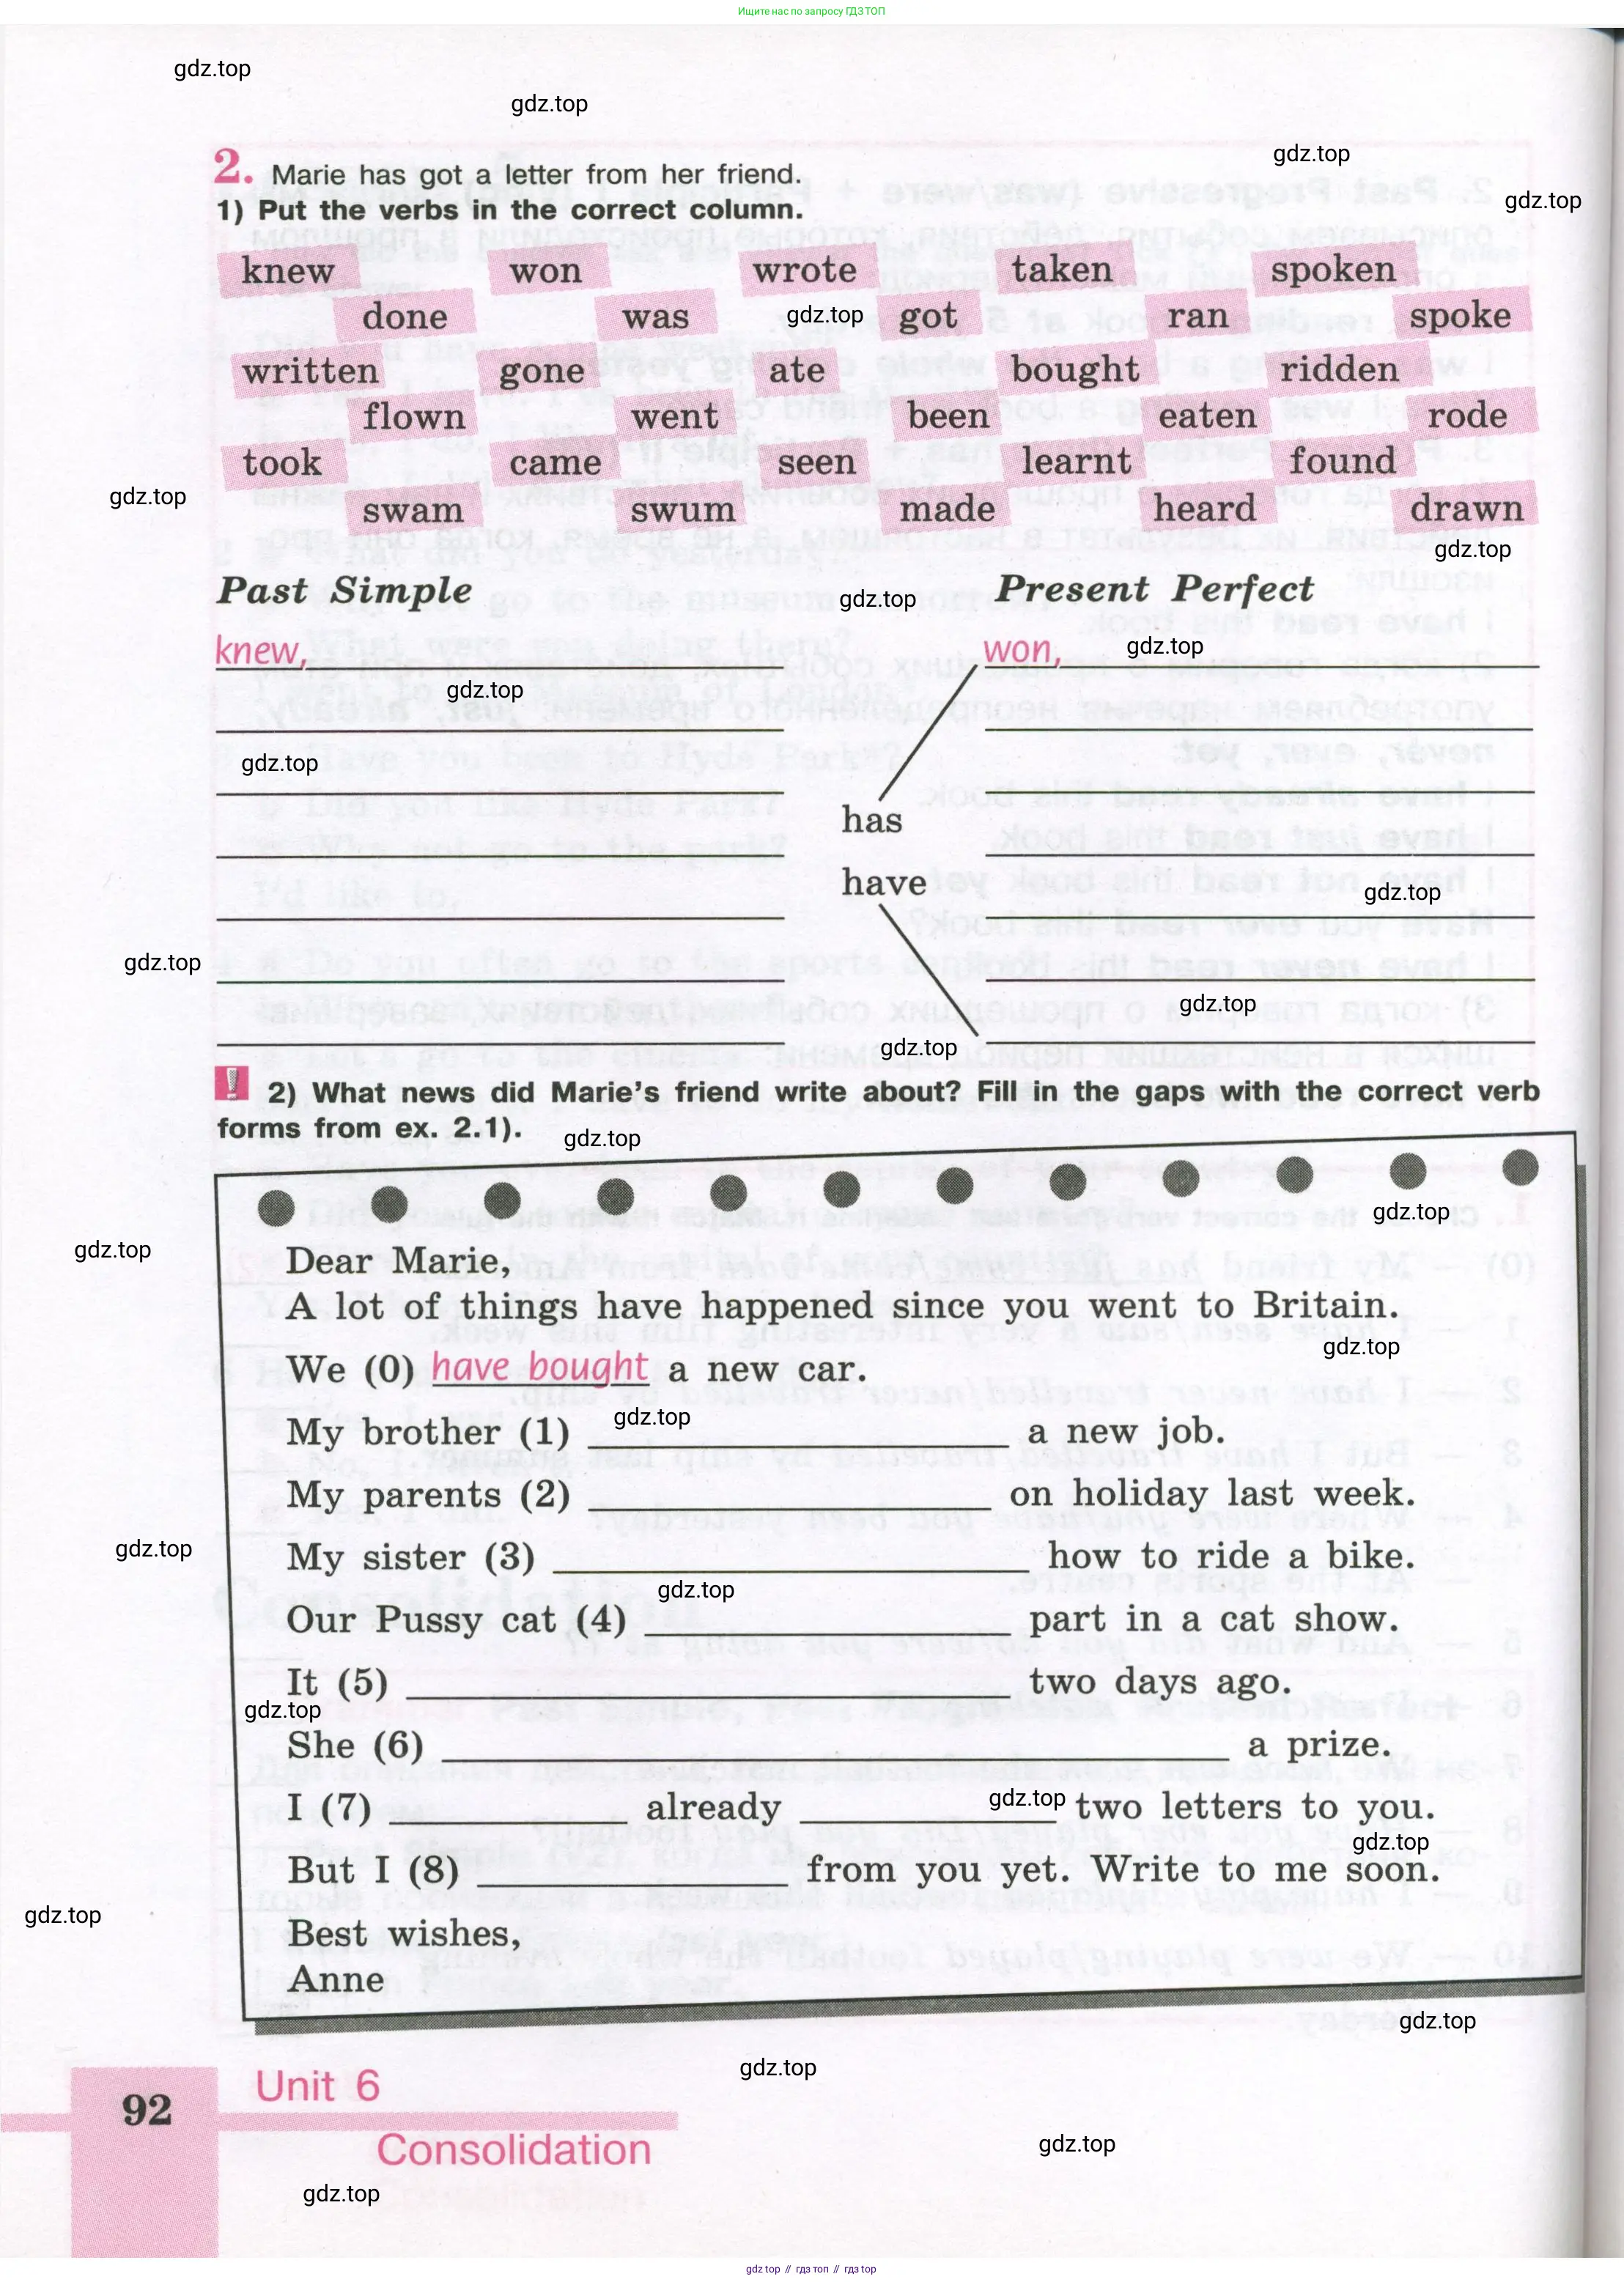 Ищите нас по запросу ГДЗ ТОП
gdz.top
gdz.top
gdz.top
2. Marie has got a letter from her friend.
gdz.top
1) Put the verbs in the correct column.
knew won wrote taken spoken
done was gdz.top got ran spoke
written gone ate bought ridden
flown went been eaten rode
took came seen learnt found
gdz.top
swam swum made heard drawn
gdz.top
Past Simple gdz.top Present Perfect
knew, won, gdz.top
gdz.top
gdz.top
has
have gdz.top
gdz.top
gdz.top
gdz.top
! 2) What news did Marie's friend write about? Fill in the gaps with the correct verb
forms from ex. 2.1). gdz.top
gdz.top
gdz.top
Dear Marie,
A lot of things have happened since you went to Britain.
gdz.top
We (0) have bought a new car.
gdz.top
My brother (1) ____ a new job.
My parents (2) ____ on holiday last week.
gdz.top
My sister (3) ____ how to ride a bike.
gdz.top
Our Pussy cat (4) ____ part in a cat show.
It (5) ____ two days ago.
gdz.top
She (6) ____ a prize.
I (7) ____ already ____ gdz.top two letters to you.
gdz.top
But I (8) ____ from you yet. Write to me soon.
gdz.top
Best wishes,
Anne
gdz.top
gdz.top
Unit 6
92
Consolidation
gdz.top
gdz.top
gdz.top // гдз топ // гдз.top